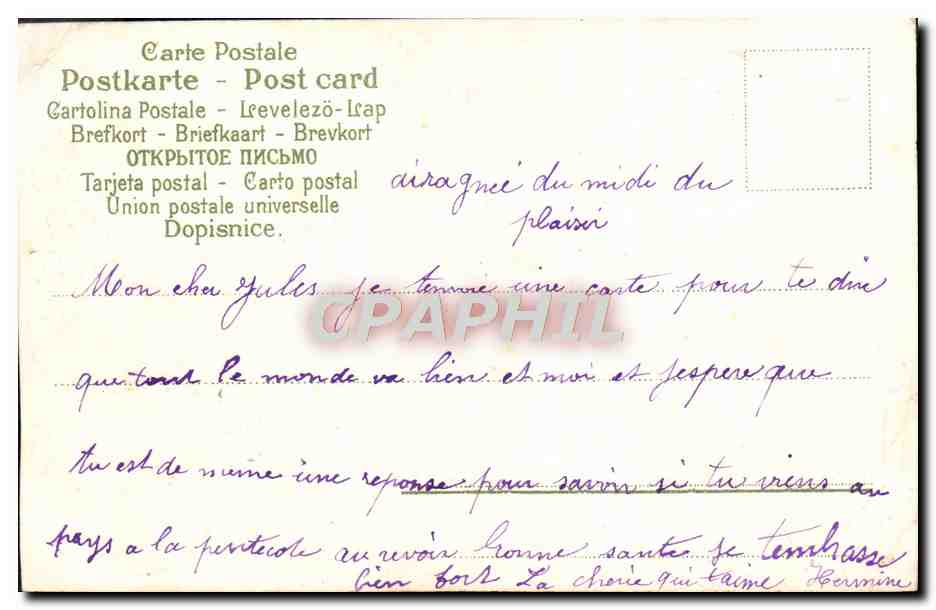 Carte Postale
Postkarte - Post card
Cartolina Postale - Levelezö-Lap
Brefkort - Briefkaart - Brevkort
ОТКРЫТОЕ ПИСЬМО
Tarjeta postal - Carto postal
Union postale universelle
Dopisnice.
du midi du
plaisir
Mon cher Jules je tenvoie une carte pour te dire
que tout le monde va bien et moi et jespere que
tu est de meme une reponse pour savoir si tu viens au
pays a la pentecote au revoir bonne sante je tembrasse
bien fort La cherie qui taime Hermine
CPAPHIL